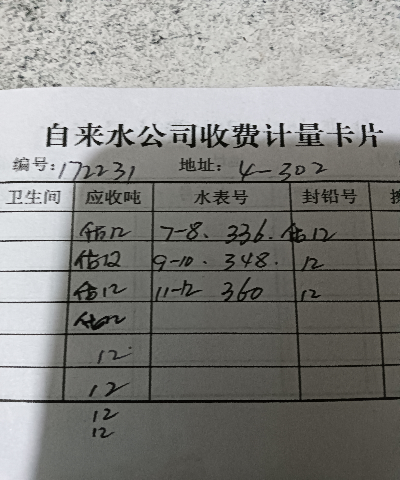 自来水公司收费计量卡片
编号:172231 地址: 4-302
卫生间 应收吨 水表号 封铅号
估12 7-8. 336. 估12
估12 9-10. 348. 12
估12 11-12 360 12
估12
12
12
12
12